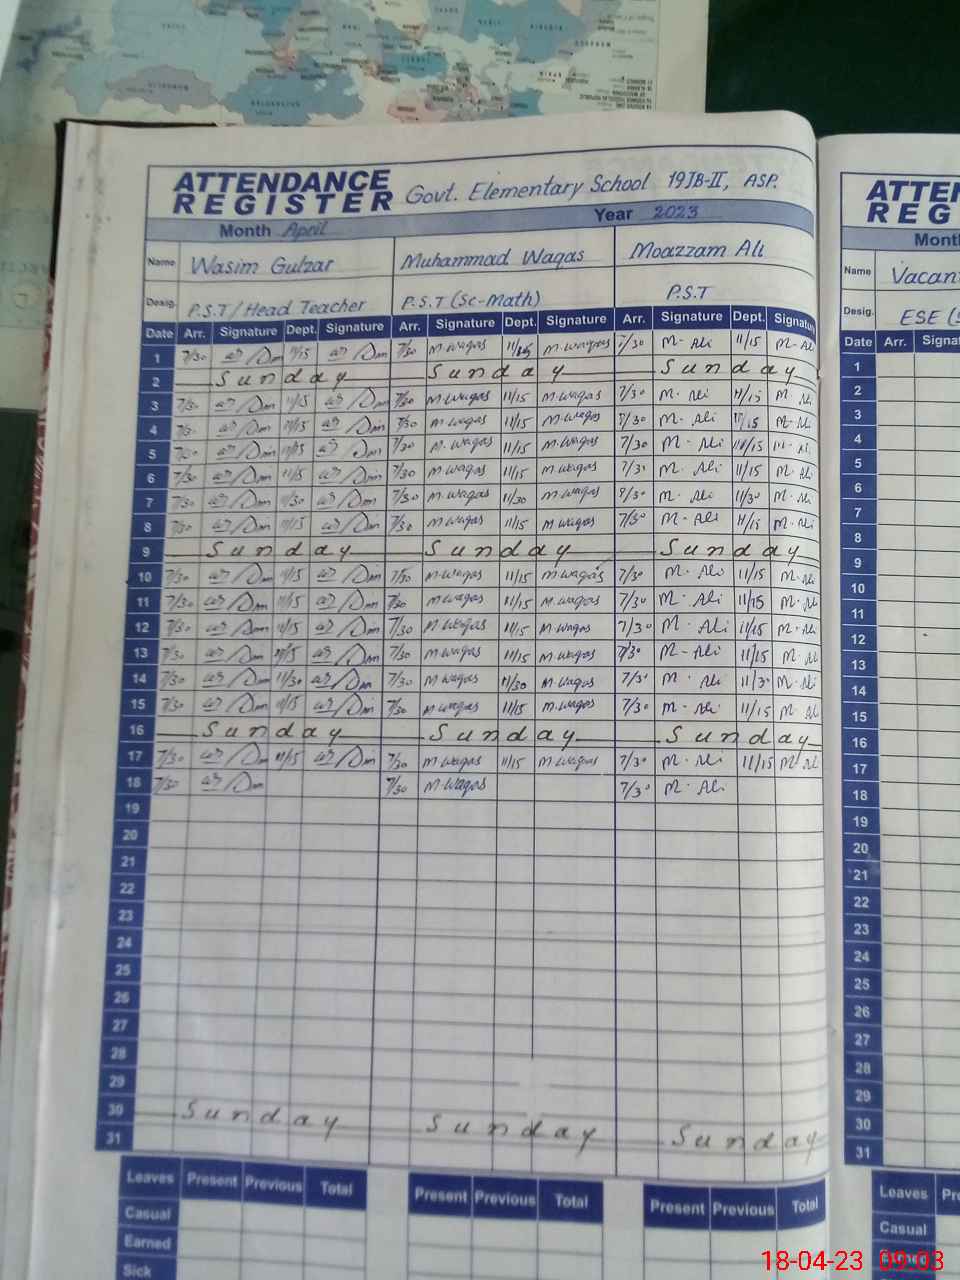 ATTENDANCE REGISTER Govt. Elementary School 19JB-II, ASP.
Month April Year 2023
Name Wasim Gulzar Muhammad Waqas Moazzam Ali
Desig. P.S.T/Head Teacher P.S.T (Sc-Math) P.S.T
Date Arr. Signature Dept. Signature Arr. Signature Dept. Signature Arr. Signature Dept. Signatur
1 7/30 11/15 7/30 M.waqas 11/15 M.waqas 7/30 M. Ali 11/15 M. Al
2 Sunday Sunday Sunday
3 7/30 11/15 7/30 M.waqas 11/15 M.waqas 7/30 M. Ali 11/15 M. Ali
4 7/30 11/15 7/30 M.waqas 11/15 M.waqas 7/30 M. Ali 11/15 M. Ali
5 11/15 7/30 M.waqas 11/15 M.waqas 7/30 M. Ali 11/15 M. Ali
6 7/30 11/15 7/30 M.waqas 11/15 M.waqas 7/30 M. Ali 11/15 M. Ali
7 7/30 11/30 7/30 M.waqas 11/30 M.waqas 7/30 M. Ali 11/30 M. Ali
8 7/30 11/15 7/30 M.waqas 11/15 M.waqas 7/30 M. Ali 11/15 M. Ali
9 Sunday Sunday Sunday
10 7/30 11/15 7/30 M.waqas 11/15 M.waqas 7/30 M. Ali 11/15 M. Ali
11 7/30 11/15 7/30 M.waqas 11/15 M.waqas 7/30 M. Ali 11/15 M. Ali
12 7/30 11/15 7/30 M.waqas 11/15 M.waqas 7/30 M. Ali 11/15 M. Ali
13 7/30 11/15 7/30 M.waqas 11/15 M.waqas 7/30 M. Ali 11/15 M. Ali
14 7/30 11/30 7/30 M.waqas 11/30 M.waqas 7/30 M. Ali 11/30 M. Ali
15 7/30 11/15 7/30 M.waqas 11/15 M.waqas 7/30 M. Ali 11/15 M. Ali
16 Sunday Sunday Sunday
17 7/30 11/15 7/30 M.waqas 11/15 M.waqas 7/30 M. Ali 11/15 M. Ali
18 7/30 7/30 M.waqas 7/30 M. Ali
19
20
21
22
23
24
25
26
27
28
29
30 Sunday Sunday Sunday
31
Leaves Present Previous Total Present Previous Total Present Previous Total
Casual
Earned
Sick
ATTEN
REG
Month
Name Vacan
Desig. ESE (S
Date Arr. Signat
1
2
3
4
5
6
7
8
9
10
11
12
13
14
15
16
17
18
19
20
21
22
23
24
25
26
27
28
29
30
31
Leaves Pre
Casual
18-04-23 09:03